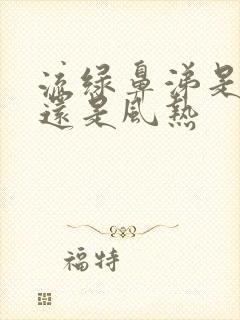 流绿鼻涕是
還是風熱
福特